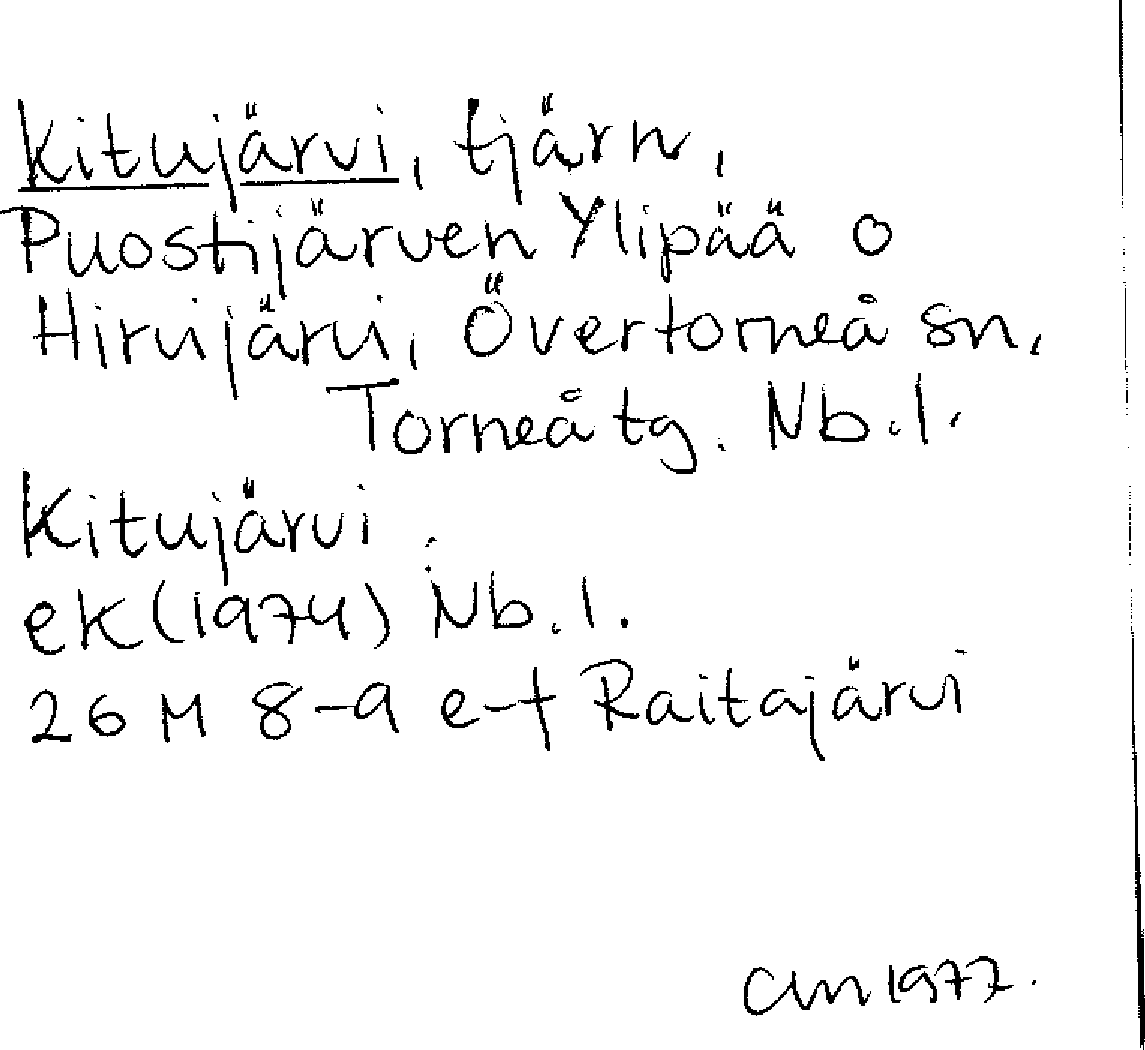 Kitujärvi, tjärn,
Puostijärven Ylipää o
Hirvijärvi, Övertorneå sn,
Torneå tg. Nb. l.
Kitujärvi
ek (1974) Nb. l.
26 M 8-9 e-f Raitajärvi
1977.